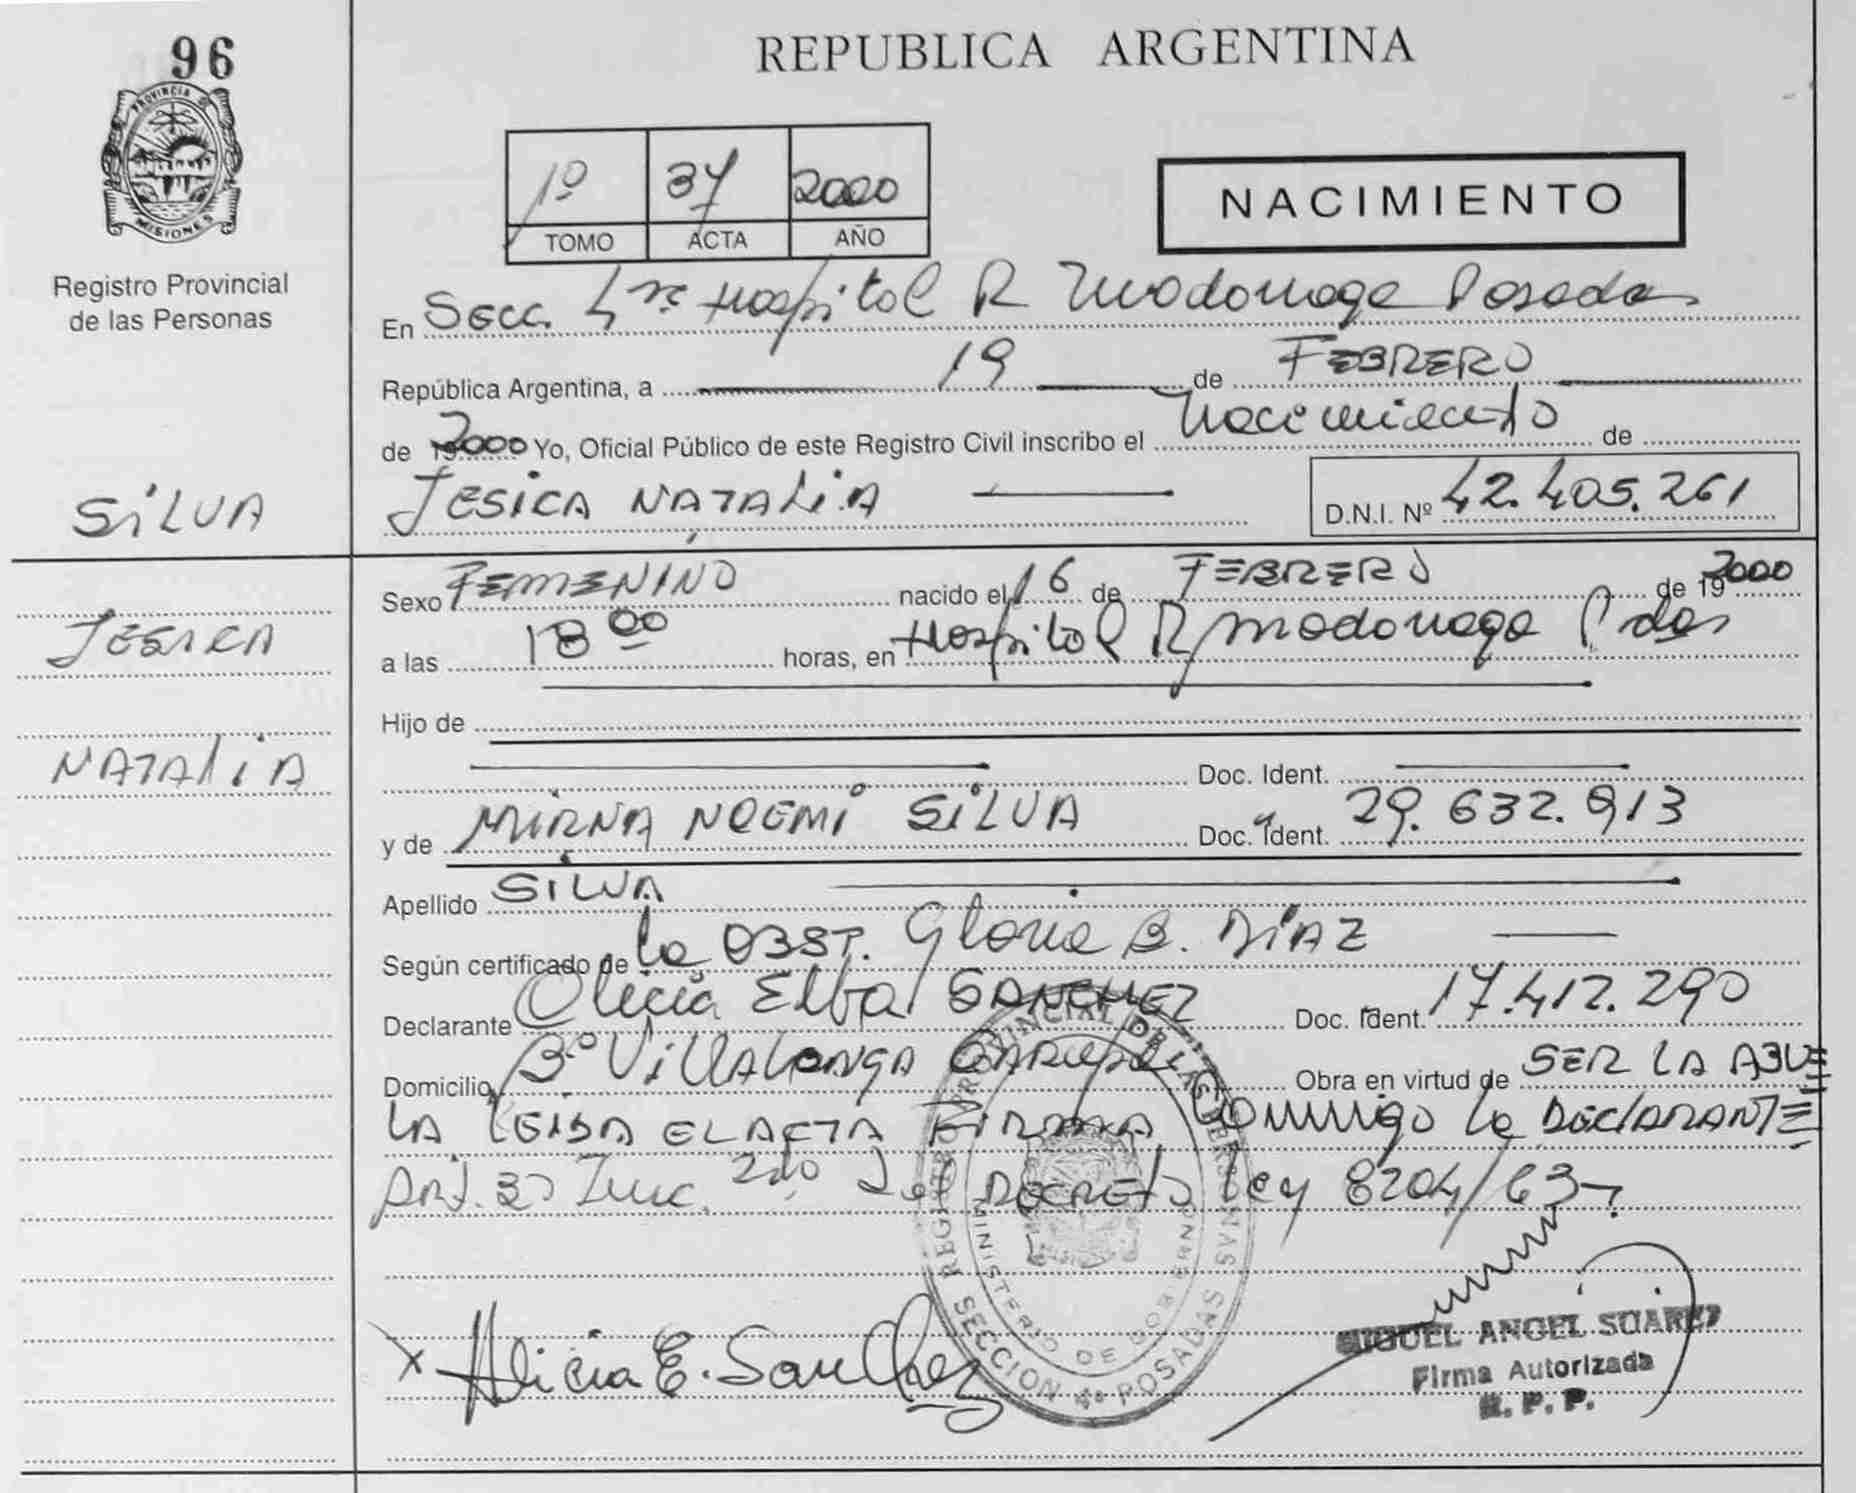 96
REPUBLICA ARGENTINA
PROVINCIA D
MISIONES
Registro Provincial
de las Personas
1º 37 2000
TOMO ACTA AÑO
NACIMIENTO
En Secc. 4ta Hospital R Madariaga Posadas
República Argentina, a 19 de FEBRERO
de 2000 Yo, Oficial Público de este Registro Civil inscribo el Nacimiento de
SILVA
JESICA NATALIA D.N.I. Nº 42.405.261
JESICA
NATALIA
Sexo FEMENINO nacido el 16 de FEBRERO de 19 2000
a las 18 00 horas, en Hospital R Madariaga Pdas
Hijo de
Doc. Ident.
y de MIRNA NOEMI SILVA Doc. Ident. 29.632.913
Apellido SILVA
Según certificado de la OBST. Gloria B. DÍAZ
Declarante Alicia Elba SANCHEZ Doc. Ident. 17.412.290
Domicilio Bº VILLALONGA Obra en virtud de SER LA ABUE
LA LEIDA EL ACTA FIRMA Conmigo la DECLARANTE
Art. 37 Inc. 2do del DECRETO Ley 8204/63
REGISTRO PROVINCIAL DE LAS PERSONAS
MINISTERIO DE GOBIERNO
SECCION 4ª POSADAS
X Alicia E. Sanchez
MIGUEL ANGEL SUAREZ
Firma Autorizada
R. P. P.